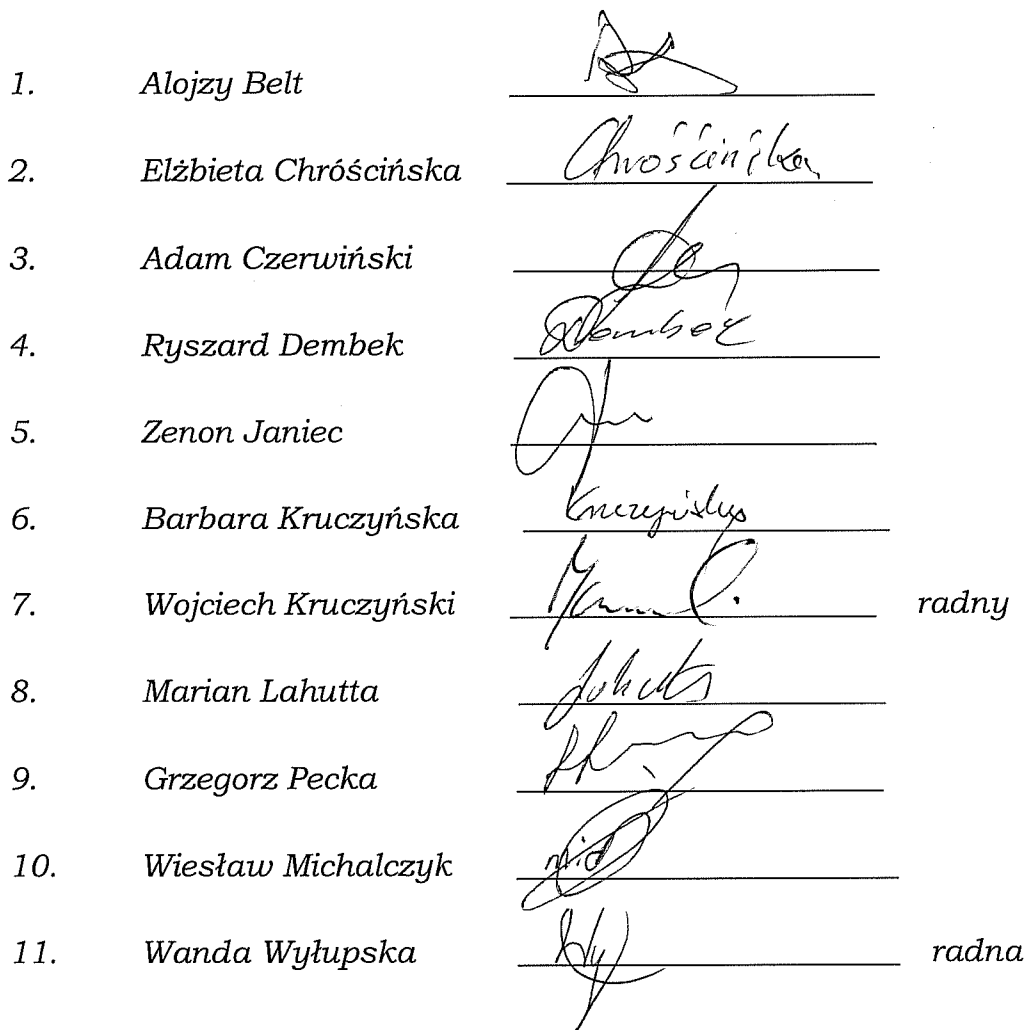 1. Alojzy Belt
2. Elżbieta Chróścińska Chróścińska
3. Adam Czerwiński
4. Ryszard Dembek Dembek
5. Zenon Janiec
6. Barbara Kruczyńska Kruczyńska
7. Wojciech Kruczyński radny
8. Marian Lahutta
9. Grzegorz Pecka
10. Wiesław Michalczyk
11. Wanda Wyłupska radna